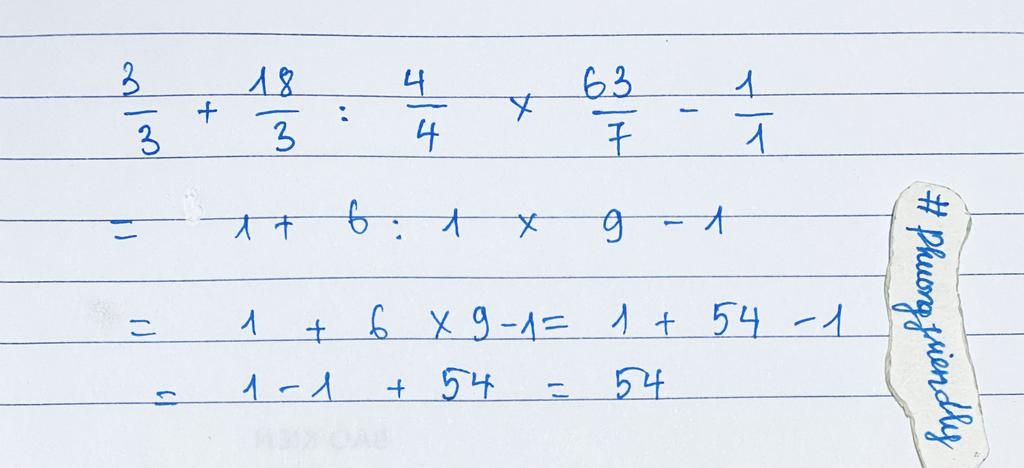 3/3 + 18/3 : 4/4 × 63/7 - 1/1
= 1 + 6 : 1 × 9 - 1
= 1 + 6 × 9 - 1 = 1 + 54 - 1
= 1 - 1 + 54 = 54
#phuongfriendly